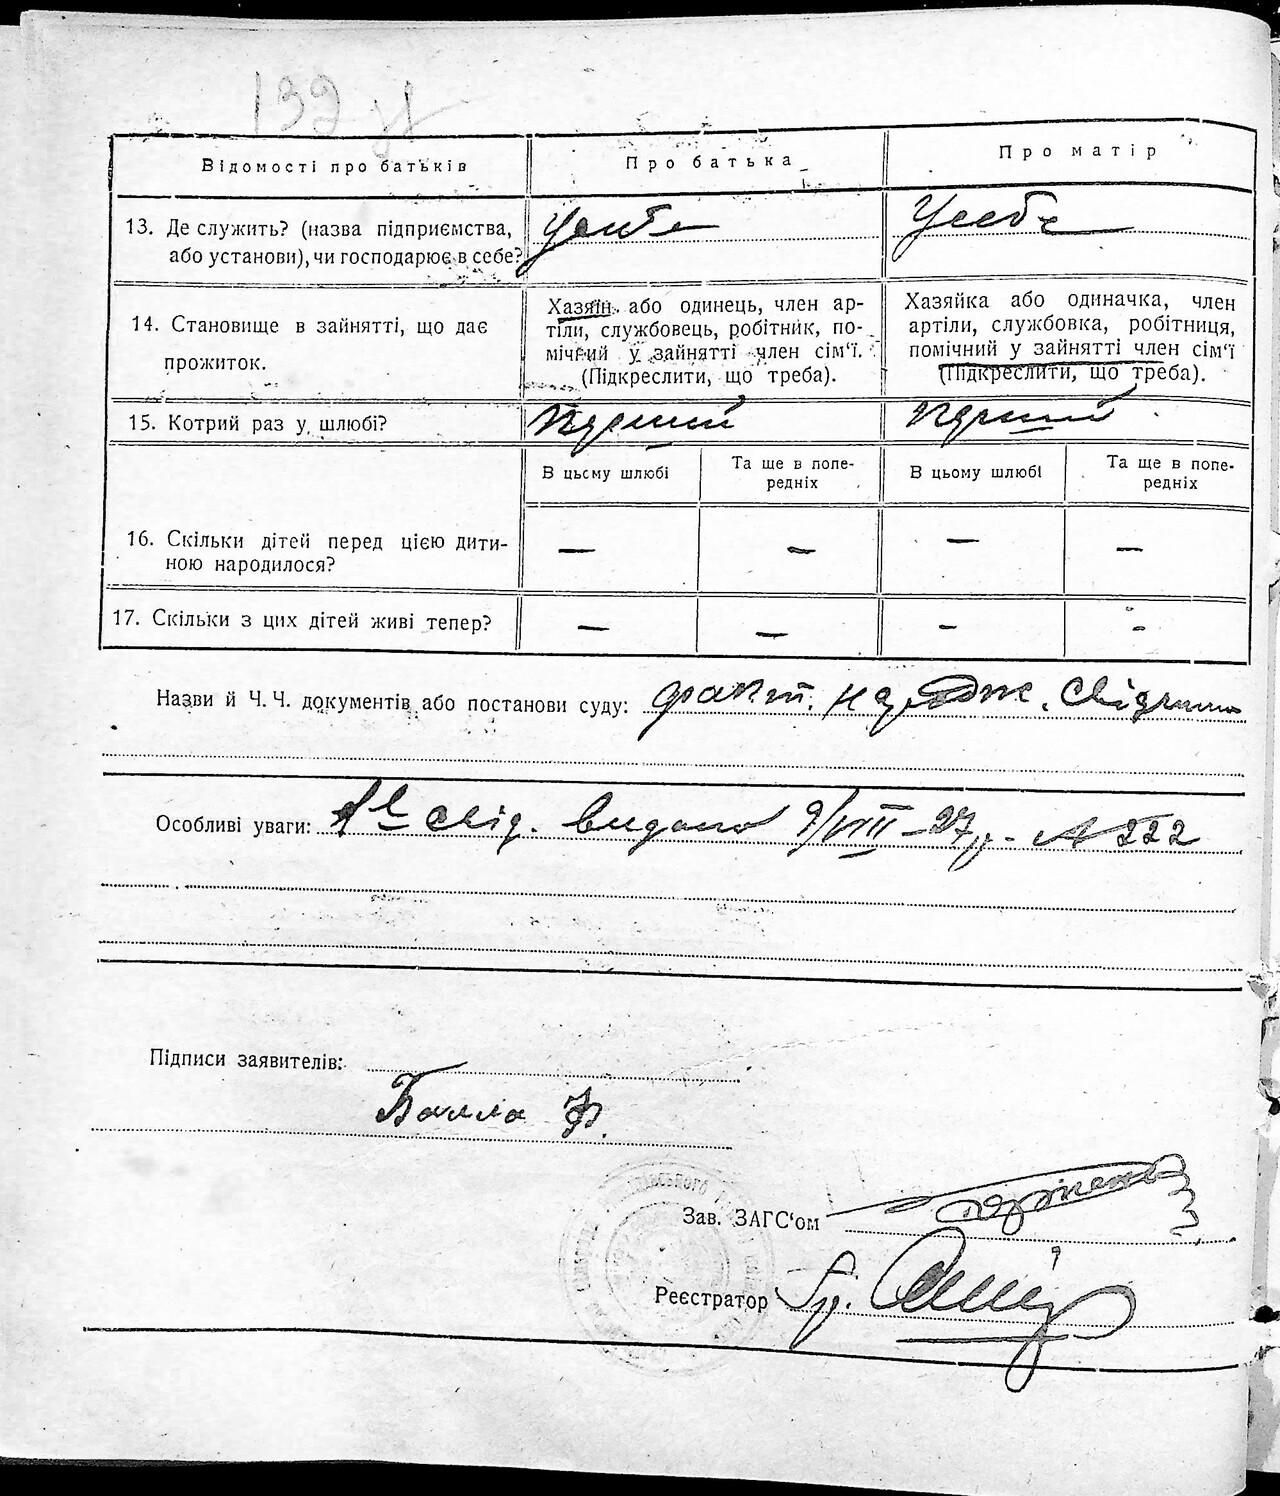 132
Відомості про батьків Про батька Про матір
13. Де служить? (назва підприємства, або установи), чи господарює в себе? У себе У себе
14. Становище в зайнятті, що дає прожиток.
Хазяїн або одинець, член ар-
тіли, службовець, робітник, по-
мічний у зайнятті член сім'ї.
(Підкреслити, що треба).
Хазяйка або одиначка, член
артіли, службовка, робітниця,
помічний у зайнятті член сім'ї
(Підкреслити, що треба).
15. Котрий раз у шлюбі? перший перший
В цьому шлюбі Та ще в попе-
редніх В цьому шлюбі Та ще в попе-
редніх
16. Скільки дітей перед цією дити-
ною народилося? — — — —
17. Скільки з цих дітей живі тепер? — — - -
Назви й Ч. Ч. документів або постанови суду: факт. народж.
Особливі уваги: свід. видано 9/VIII-27 р. № 222
Підписи заявителів:
Балла Ф.
Зав. ЗАГС'ом
Реєстратор